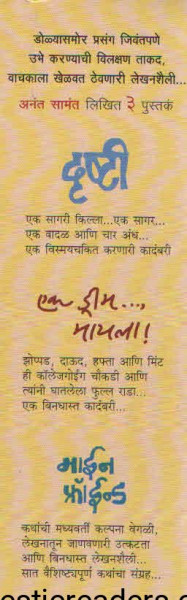 डोळ्यासमोर प्रसंग जिवंतपणे
उभे करण्याची विलक्षण ताकद,
वाचकाला खेळवत ठेवणारी लेखनशैली...
अनंत सामंत लिखित ३ पुस्तकं
दृष्टी
एक सागरी किल्ला...एक सागर...
एक वादळ आणि चार अंध...
एक विस्मयचकित करणारी कादंबरी
एक ड्रीम...,
मायला!
झोपड, दाऊद, हफ्ता आणि मिंट
ही कॉलेजगोईंग चौकडी आणि
त्यांनी घातलेला फुल्ल राडा...
एक बिनधास्त कादंबरी...
माईन
फ्रॉईन्ड
कथांची मध्यवर्ती कल्पना वेगळी,
लेखनातून जाणवणारी उत्कटता
आणि बिनधास्त लेखनशैली...
सात वैशिष्ट्यपूर्ण कथांचा संग्रह...